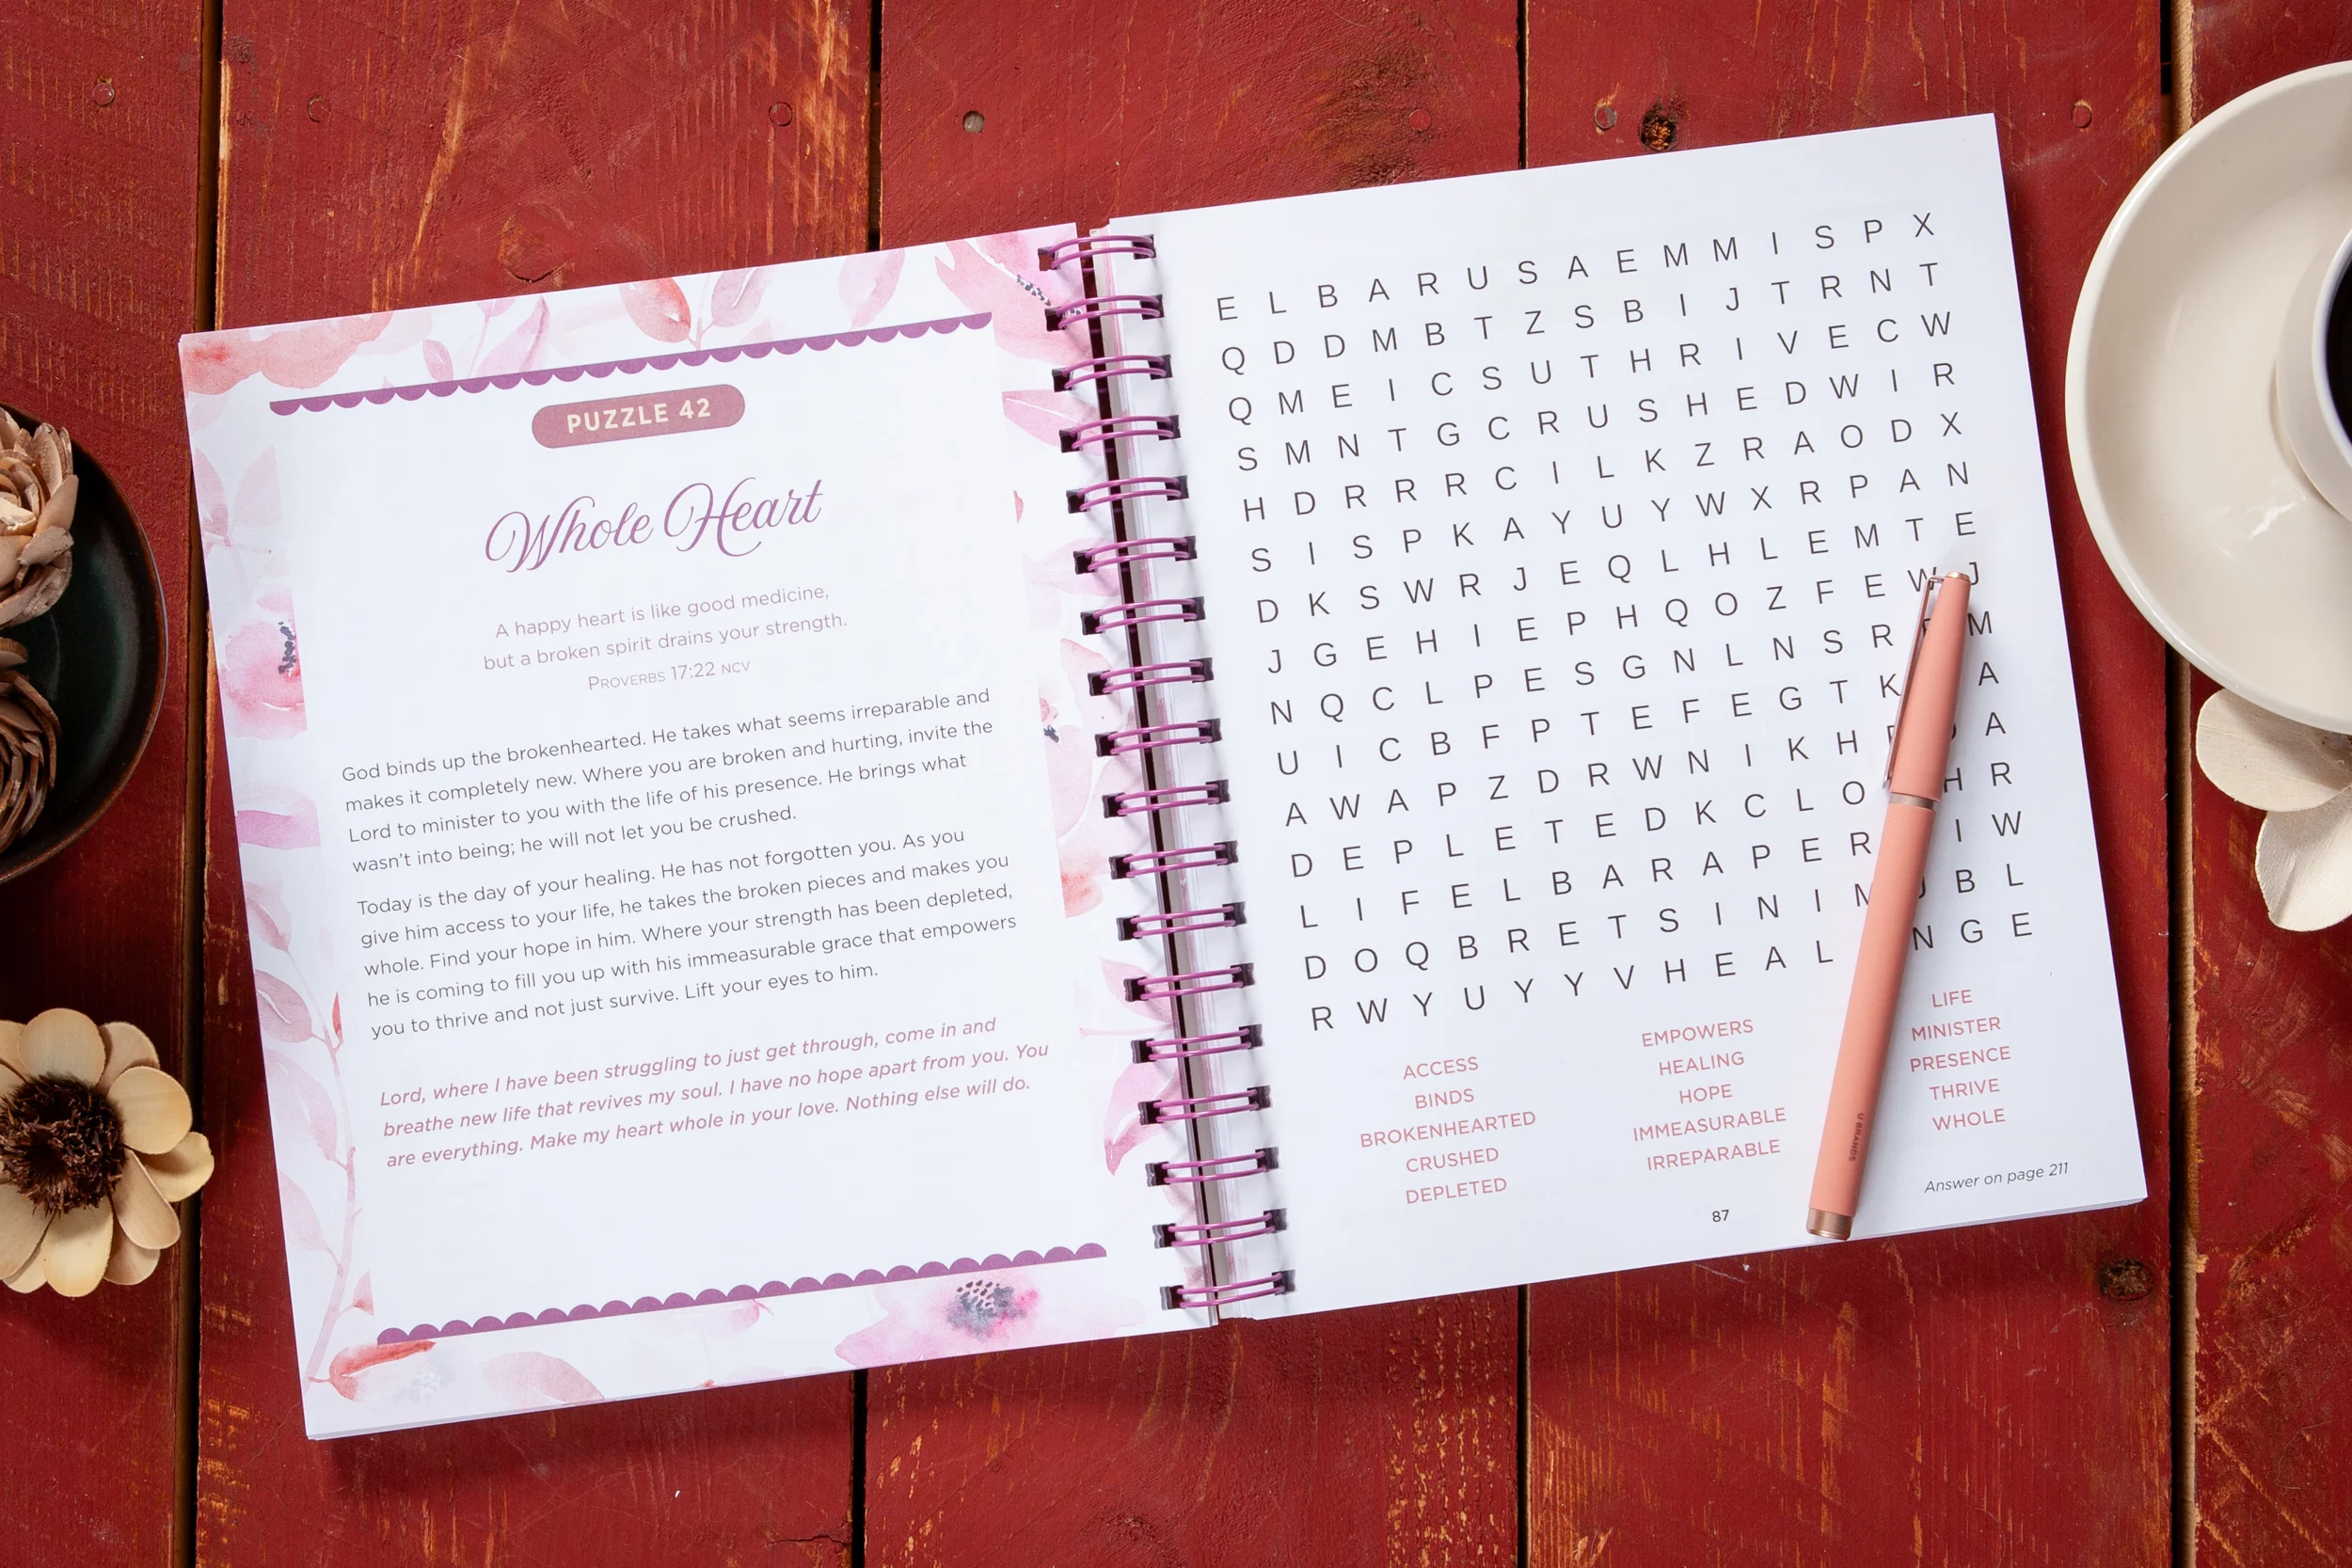 PUZZLE 42
Whole Heart
A happy heart is like good medicine,
but a broken spirit drains your strength.
PROVERBS 17:22 NCV
God binds up the brokenhearted. He takes what seems irreparable and
makes it completely new. Where you are broken and hurting, invite the
Lord to minister to you with the life of his presence. He brings what
wasn't into being; he will not let you be crushed.
Today is the day of your healing. He has not forgotten you. As you
give him access to your life, he takes the broken pieces and makes you
whole. Find your hope in him. Where your strength has been depleted,
he is coming to fill you up with his immeasurable grace that empowers
you to thrive and not just survive. Lift your eyes to him.
Lord, where I have been struggling to just get through, come in and
breathe new life that revives my soul. I have no hope apart from you. You
are everything. Make my heart whole in your love. Nothing else will do.
E L B A R U S A E M M I S P X
Q D D M B T Z S B I J T R N T
Q M E I C S U T H R I V E C W
S M N T G C R U S H E D W I R
H D R R R C I L K Z R A O D X
S I S P K A Y U Y W X R P A N
D K S W R J E Q L H L E M T E
J G E H I E P H Q O Z F E W J
N Q C L P E S G N L N S R M
U I C B F P T E F E G T K A
A W A P Z D R W N I K H A
D E P L E T E D K C L O H R
L I F E L B A R A P E R I W
D O Q B R E T S I N I M B L
R W Y U Y Y V H E A L N G E
ACCESS
BINDS
BROKENHEARTED
CRUSHED
DEPLETED
EMPOWERS
HEALING
HOPE
IMMEASURABLE
IRREPARABLE
LIFE
MINISTER
PRESENCE
THRIVE
WHOLE
Answer on page 211
87
U BRANDS